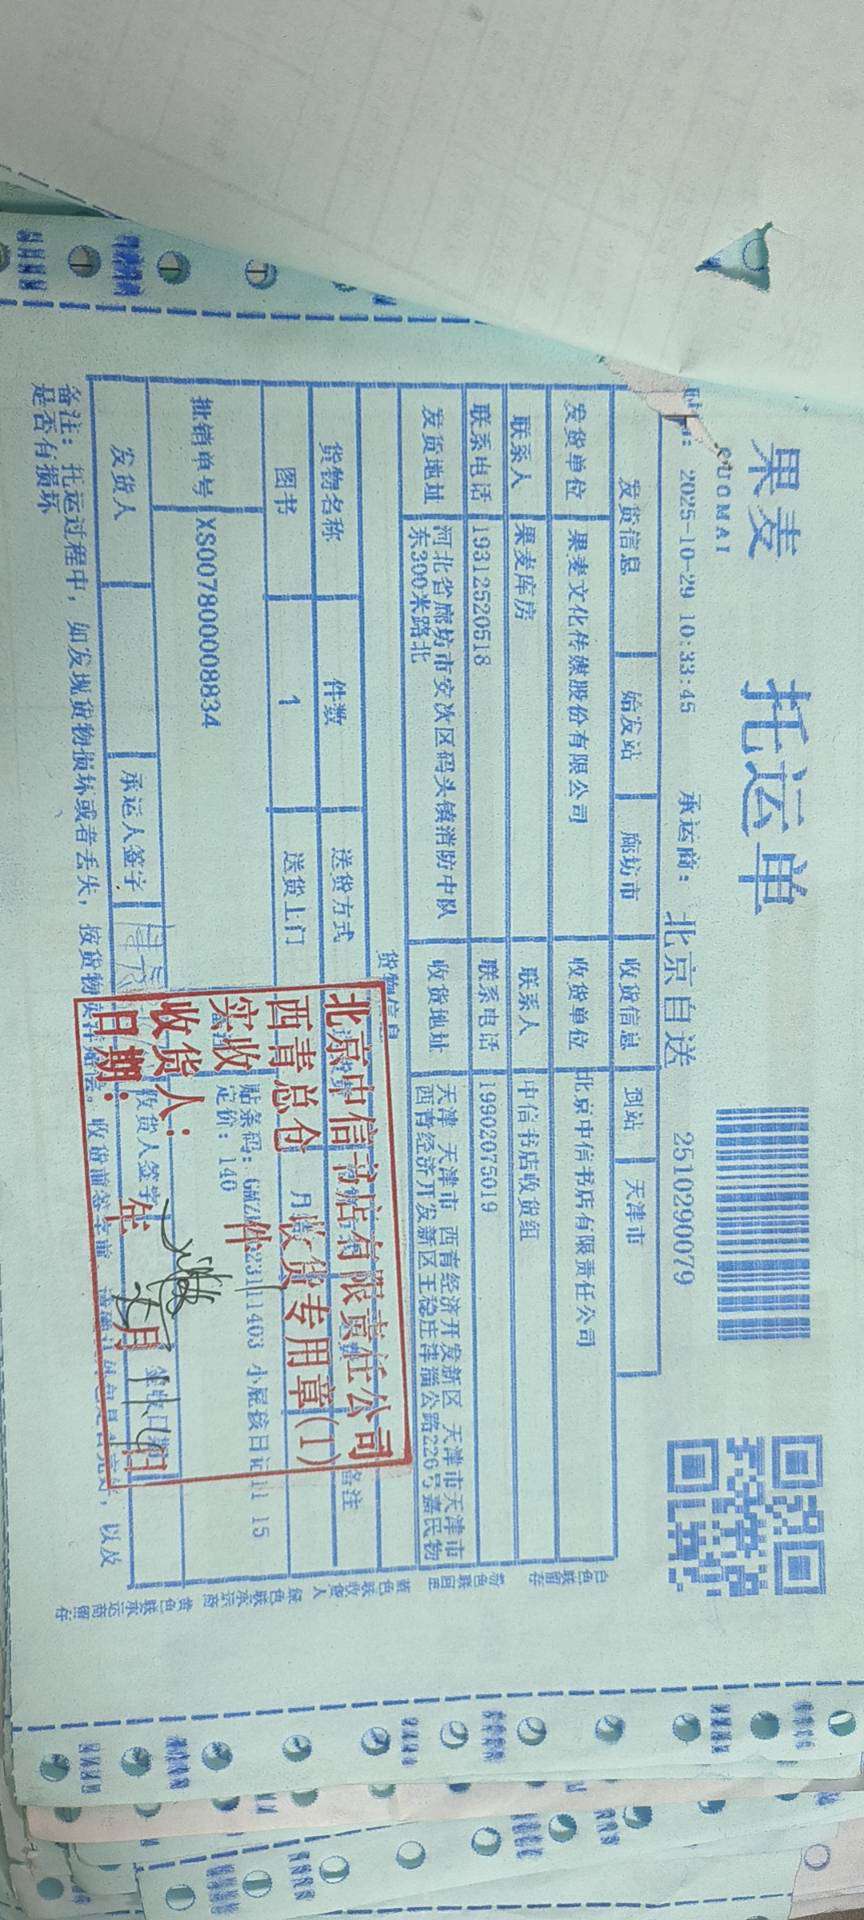 果麦 托运单
GUOMAI
2025-10-29 10:33:45 承运商： 北京自送 2510290079
发货信息 始发站 廊坊市 收货信息 到站 天津市
发货单位 果麦文化传媒股份有限公司 收货单位 北京中信书店有限责任公司
联系人 果麦库房 联系人 中信书店收货组
联系电话 19312520518 联系电话 19902075019
发货地址 河北省廊坊市安次区码头镇消防中队 收货地址 天津 天津市 西青经济开发新区 天津市天津市
东300米路北 西青经济开发新区王稳庄津淄公路226号嘉民物
货物信息
货物名称 件数 送货方式 备注
图书 1 送货上门 月
批销单号 XS007800008834
贴条码： 小屁孩日记11 15
定价：140
发货人 承运人签字 收货人签字
备注：托运过程中，如发现货物损坏或者丢失，按货物
是否有损坏
北京中信书店有限责任公司
西青总仓 收货专用章(1)
实收 件
收货人：
日期： 年 月 日
白色联留存
粉色联回单
蓝色联收货人
绿色联承运商
黄色联承运商留存